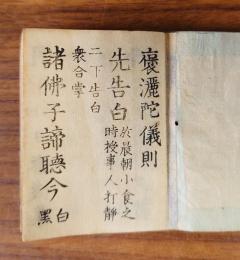 褒灑陀儀則
先告白於晨朝小食之
時授事人打靜
二下告白
衆合掌
諸佛子諦聽今白
黑